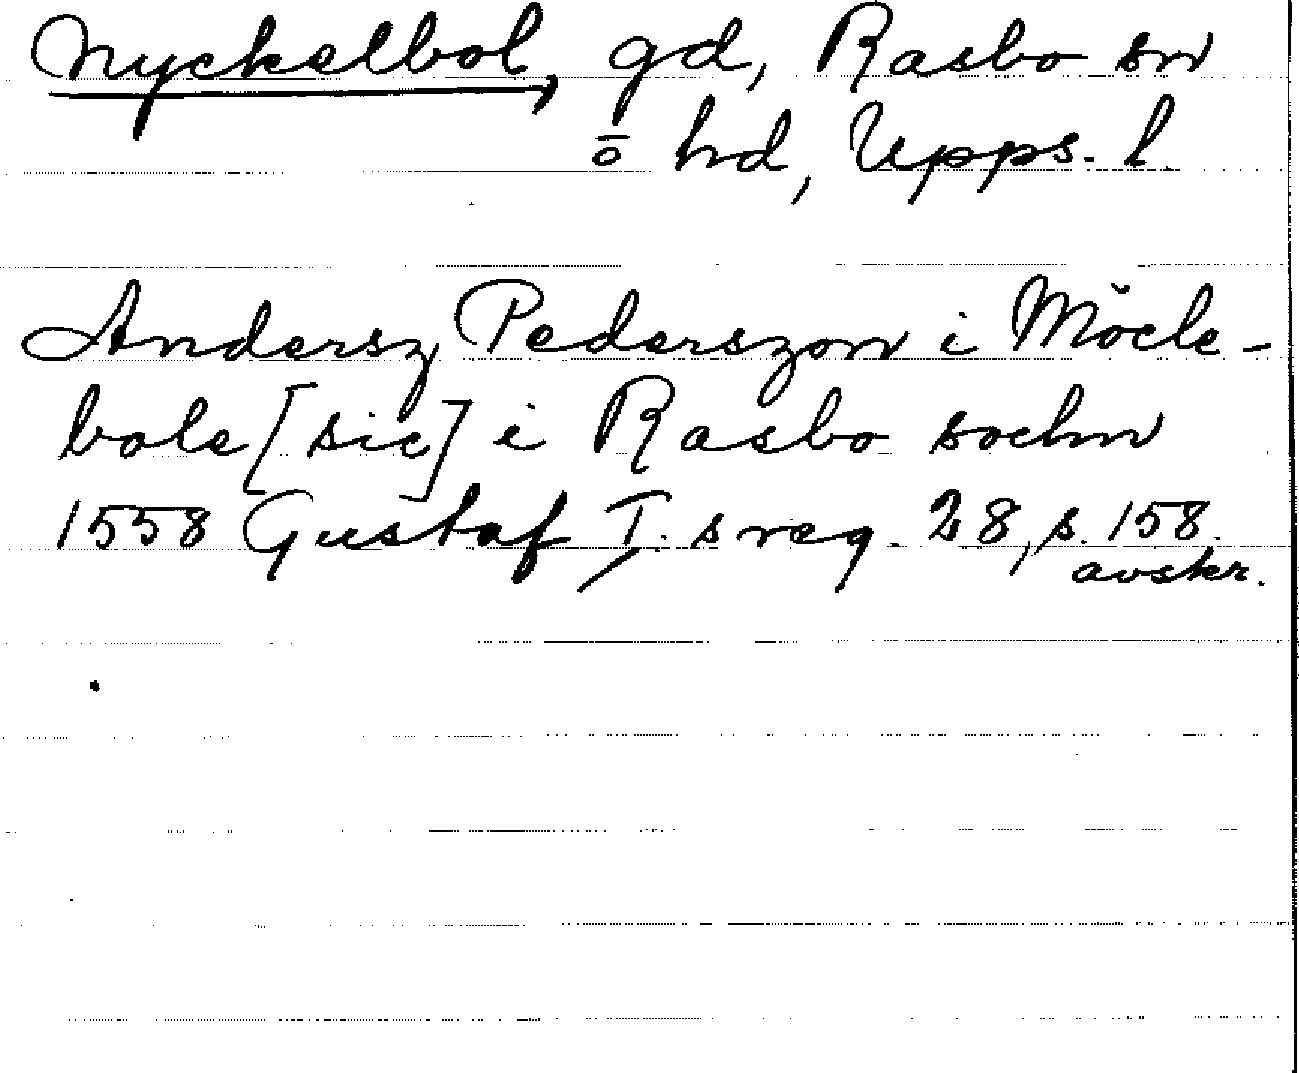 Nyckelbol, gd, Rasbo sn
ō hd, Upps. l.
Andersz Pederszon i Möcle-
bole [sic] i Rasbo sochn
1558 Gustaf I. s reg. 28, s. 158.
avskr.